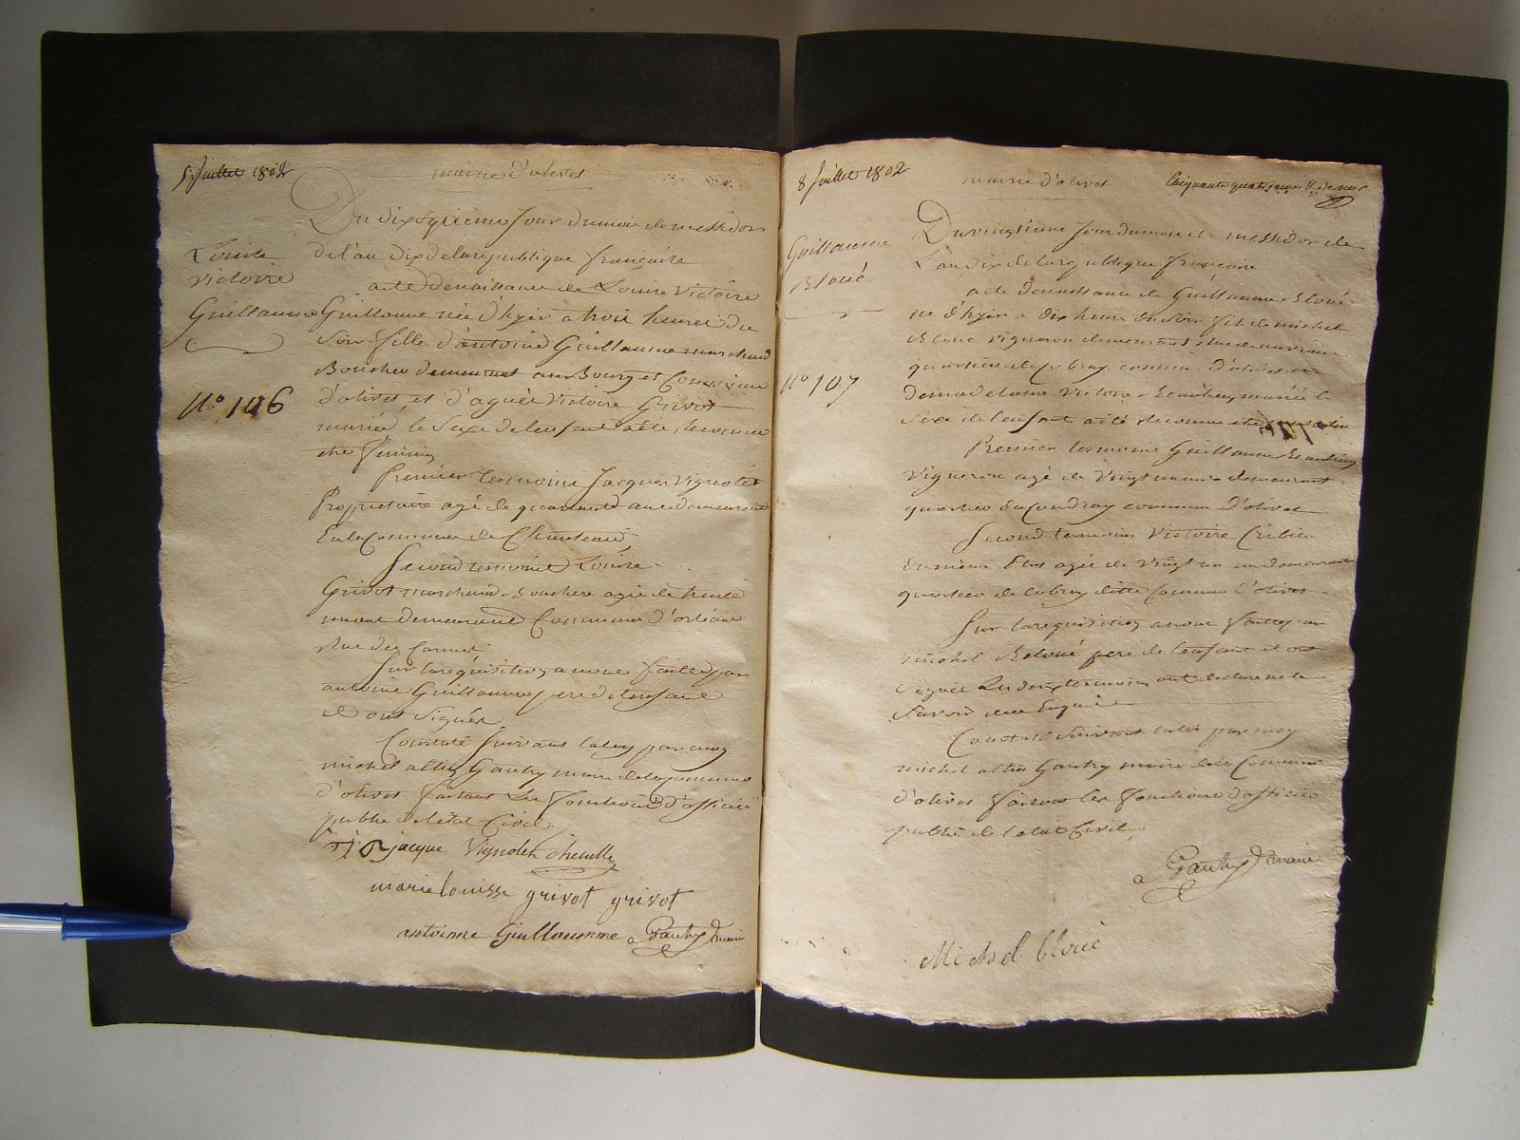 5 Juillet 1802
mairie d'olivet
Du dixseptieme Jour du mois de messidor
de l'an dix de la republique francaise
Louise
Victoire
Guillaume
acte de naissance de Louise Victoire
Guillaume née d'hyér a trois heures du
soir fille d'antoine Guillaume marchand
Boucher demeurant au Bourg et Commune
No 106
d'olivet et d'aguée Victoire Grivot
mariée le Sexe de l'enfant a été reconnue
etre feminin
Premier temoin Jacques Vignolet
Propriétaire agé de quarante ans demeurant
En la Commune de
Second temoine Louise
Grivot marchand Bouchere agée de trente
demeurand Commune d'orleans
Rue des Carmes
Sur la requisition a nous faitte par
antoine Guillaume pere de l'enfant
et ont signés
Constaté Suivant la loy par moy
michel altin Gautry maire de la commune
d'olivet faisant Les fonctions d'officier
public de l'etat Civil
jacque Vignolet
marie louisse grivot grivot
antoinne Guillaumme a Gautry maire
8 Juillet 1802
mairie d'olivet
Cinquante quatrieme
Guillaume
Bloué
Du vingtieme Jour du mois de messidor de
L'an dix de la republique francaise
acte de naissance de Guillaume Bloué
né d'hyér a dix heures du Soir fils de michel
Bloué vigneron demeurant
quartier de commune d'olivet et
No 107
de madelaine Victoire mariée le
Sexe de l'enfant a été reconnu etre masculin
Premier temoins Guillaume
vigneron agé de vingt demeurant
quartier du Coudray commune d'olivet
Second temoins Victoire
agée de vingt un an demeurant
quartier de ditte Commune d'olivet
Sur la requisition a nous faitte par
michel Bloué pere de l'enfant et ont
signés Les deux temoins ont declaré ne le
Savoir
Constaté Suivant la loi par moy
michel altin Gautry maire de la Commune
d'olivet faisant les fonctions d'officier
public de l'etat Civil
a Gautry maire
Michel bloué